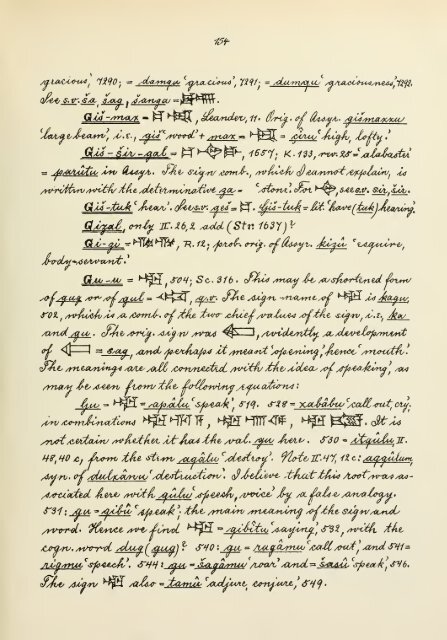 154
gracious,' 7290; = damqu 'gracious,' 7291; = dumqu 'graciousness,' 7292.
See s.v. ša, šag, šanga =
Giš-max = Leander, 11. Orig. of Assyr. gišmaxxu
'large beam,' i.e., giš 'wood' + max = = çîru 'high, lofty.'
Giš-šir-gal = , 1657; K. 133, rev. 25 = 'alabaster'
= parûtu in Assyr. The sign comb., which I cannot explain, is
written with the determinative ga = 'stone.' For , see s.v. sir, šir.
Giš-tuk 'hear.' See s.v. geš = . Giš-tuk = lit. 'have (tuk) hearing.'
Gizal, only II. 26, 2 add (Str. 1637)?
Gi-gi = , R. 12; prob. orig. of Assyr. kizû 'esquire,
body-servant.'
Gu-u = , 504; Sc. 316. This may be a shortened form
of gug or of gul = , q.v. The sign-name of is kagu,
502, which is a comb. of the two chief values of the sign, i.e., ka
and gu. The orig. sign was , evidently a development
of = sag, and perhaps it meant 'opening,' hence 'mouth.'
The meanings are all connected with the idea of speaking, as
may be seen from the following equations:
Gu = = apâlu 'speak,' 519. 528 = xabâbu 'call out, cry,'
in combinations , , . It is
not certain whether it has the val. gu here. 530 = itgûlu, II.
48, 40 c, from the stem agâlu 'destroy'. Note II. 47, 12 c: aggullum,
syn. of dulxânu 'destruction.' I believe that this root was as-
sociated here with gûlu 'speech, voice' by a false analogy.
531: gu = gibû 'speak', the main meaning of the sign and
word. Hence we find = gibîtu 'saying,' 532, with the
cogn. word dug (gug)? 540: gu = ragâmu 'call out,' and 541 =
rigmu 'speech'. 544: gu = šagâmu 'roar' and = šasû 'speak,' 546.
The sign also = tamû 'adjure, conjure,' 549.